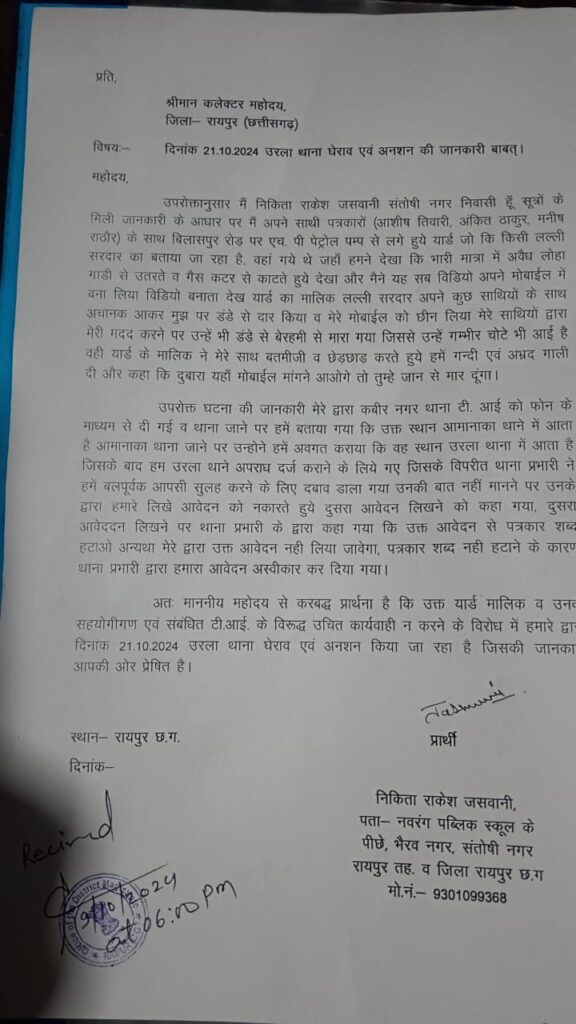 प्रति,
श्रीमान कलेक्टर महोदय,
जिला– रायपुर (छत्तीसगढ़)
विषयः– दिनांक 21.10.2024 उरला थाना घेराव एवं अनशन की जानकारी बाबत्।
महोदय,
उपरोक्तानुसार मैं निकिता राकेश जसवानी संतोषी नगर निवासी हूँ सूत्रों के
मिली जानकारी के आधार पर मैं अपने साथी पत्रकारों (आशीष तिवारी, अंकित ठाकुर, मनीष
राठौर) के साथ बिलासपुर रोड पर एच. पी पेट्रोल पम्प से लगे हुये यार्ड जो कि किसी लल्ली
सरदार का बताया जा रहा है, वहां गये थे जहाँ हमने देखा कि भारी मात्रा में अवैध लोहा
गाडी से उतरते व गैस कटर से काटते हुये देखा और मैने यह सब विडियो अपने मोबाईल में
बना लिया विडियो बनाता देख यार्ड का मालिक लल्ली सरदार अपने कुछ साथियों के साथ
अचानक आकर मुझ पर डंडे से वार किया व मेरे मोबाईल को छीन लिया मेरे साथियों द्वारा
मेरी मदद करने पर उन्हें भी डंडे से बेरहमी से मारा गया जिससे उन्हें गम्भीर चोटे भी आई है
वही यार्ड के मालिक ने मेरे साथ बतमीजी व छेडछाड़ करते हुये हमें गन्दी एवं अभ्रद गाली
दी और कहा कि दुबारा यहाँ मोबाईल मांगने आओगे तो तुम्हे जान से मार दूंगा।
उपरोक्त घटना की जानकारी मेरे द्वारा कबीर नगर थाना टी. आई को फोन के
माध्यम से दी गई व थाना जाने पर हमें बताया गया कि उक्त स्थान आमानाका थाने में आता
है आमानाका थाना जाने पर उन्होने हमें अवगत कराया कि वह स्थान उरला थाना में आता है
जिसके बाद हम उरला थाने अपराध दर्ज कराने के लिये गए जिसके विपरीत थाना प्रभारी ने
हमें बलपूर्वक आपसी सुलह करने के लिए दबाव डाला गया उनकी बात नहीं मानने पर उनके
द्वारा हमारे लिखे आवेदन को नकारते हुये दुसरा आवेदन लिखने को कहा गया, दुसरा
आवेददन लिखने पर थाना प्रभारी के द्वारा कहा गया कि उक्त आवेदन से पत्रकार शब्द
हटाओ अन्यथा मेरे द्वारा उक्त आवेदन नही लिया जावेगा, पत्रकार शब्द नही हटाने के कारण
थाना प्रभारी द्वारा हमारा आवेदन अस्वीकार कर दिया गया।
अतः माननीय महोदय से करबद्ध प्रार्थना है कि उक्त यार्ड मालिक व उनके
सहयोगीगण एवं संबंधित टी.आई. के विरूद्ध उचित कार्यवाही न करने के विरोध में हमारे द्वारा
दिनांक 21.10.2024 उरला थाना घेराव एवं अनशन किया जा रहा है जिसकी जानका
आपकी ओर प्रेषित है।
प्रार्थी
स्थान– रायपुर छ.ग.
दिनांक–
निकिता राकेश जसवानी,
पता– नवरंग पब्लिक स्कूल के
पीछे, भैरव नगर, संतोषी नगर
रायपुर तह. व जिला रायपुर छ.ग
मो.नं.– 9301099368
Recived
9/10/2024
at 06:00 PM
Office of the District